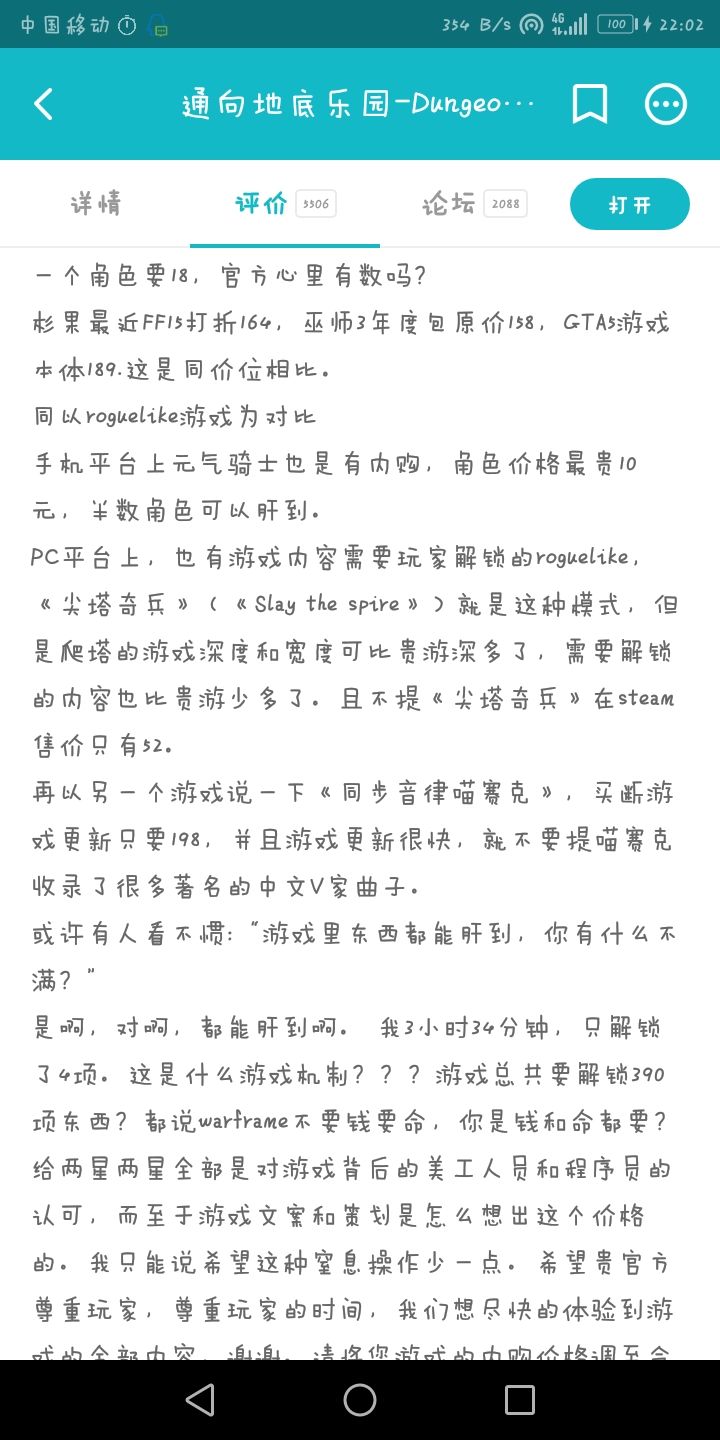 中国移动 354 B/s 4G 100 22:02
通向地底乐园-Dungeo...
详情 评价 5506 论坛 2088 打开
一个角色要18，官方心里有数吗？
杉果最近FF15打折164，巫师3年度包原价158，GTA5游戏
本体189.这是同价位相比。
同以roguelike游戏为对比
手机平台上元气骑士也是有内购，角色价格最贵10
元，半数角色可以肝到。
PC平台上，也有游戏内容需要玩家解锁的roguelike，
《尖塔奇兵》（《Slay the spire》）就是这种模式，但
是爬塔的游戏深度和宽度可比贵游深多了，需要解锁
的内容也比贵游少多了。且不提《尖塔奇兵》在steam
售价只有52。
再以另一个游戏说一下《同步音律喵赛克》，买断游
戏更新只要198，并且游戏更新很快，就不要提喵赛克
收录了很多著名的中文V家曲子。
或许有人看不惯:“游戏里东西都能肝到，你有什么不
满？”
是啊，对啊，都能肝到啊。 我3小时34分钟，只解锁
了4项。这是什么游戏机制？？？游戏总共要解锁390
项东西？都说warframe不要钱要命，你是钱和命都要？
给两星两星全部是对游戏背后的美工人员和程序员的
认可，而至于游戏文案和策划是怎么想出这个价格
的。我只能说希望这种窒息操作少一点。希望贵官方
尊重玩家，尊重玩家的时间，我们想尽快的体验到游
戏的全部内容，谢谢。请将您游戏的内购价格调至合